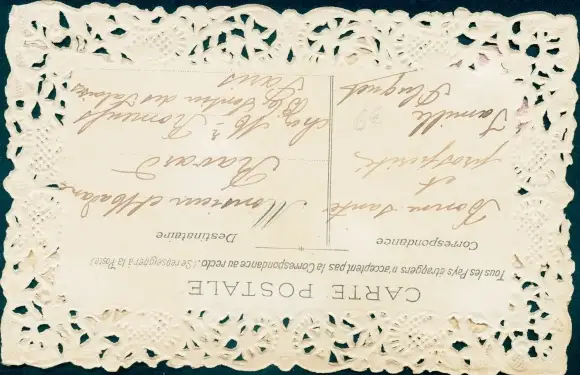 CARTE POSTALE
Tous les Pays étrangers n'acceptent pas la Correspondance au recto. (Se renseigner à la Poste)
Correspondance
Bonne Santé
et
prospérité
Famille
Destinataire
Monsieur et Madame
Ravard
chez Mr
Paris